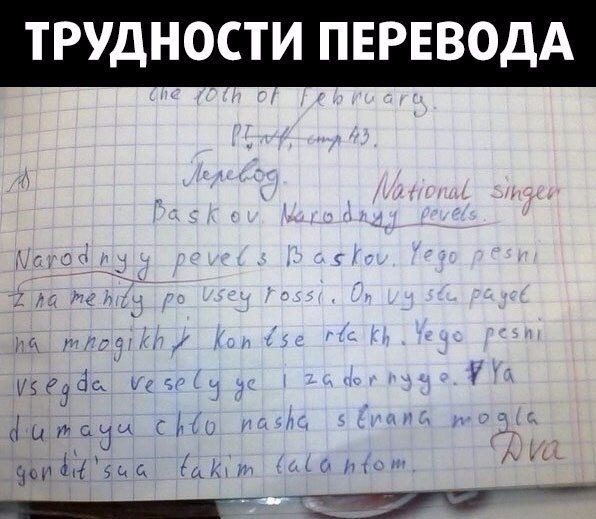 ТРУДНОСТИ ПЕРЕВОДА
the 10th of February.
стр 43.
Перевод.
National singer
Baskov. Narodnyy pevets.
Narodnyy pevets Baskov. Yego pesni
znamenity po vsey rossi. On vystupayet
na mnogikh kontsertakh. Yego pesni
vsegda veselyye i zadornyye. Ya
dumayu chto nasha strana mogla
gordit'sya takim talantom.
Dva